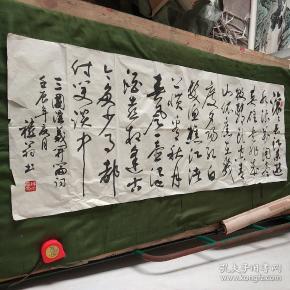 滚滚长江东逝
水浪花淘尽
英雄是非成
败转头空青
山依旧在几
度夕阳红白
发渔樵江渚
上惯看秋月
春風一壶浊
酒喜相逢古
今多少事都
付笑谈中
三國演義开篇词
壬辰年夏月
翁书
孔夫子旧书网